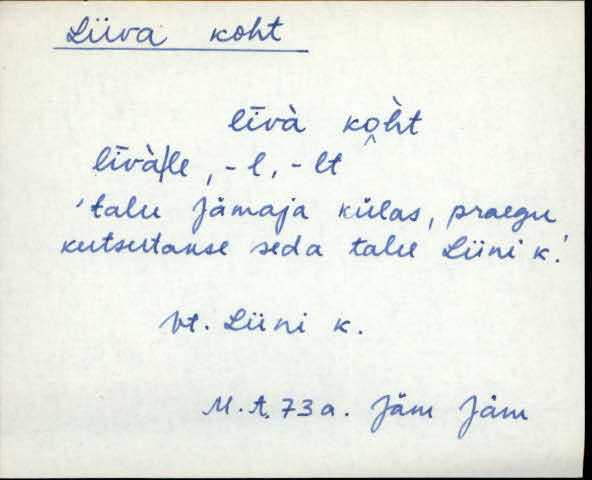 Liiva koht
līvà kòht
līvà|le, -l, -lt
'talu Jämaja külas, praegu
kutsutakse seda talu Liini k.'
Vt. Liini k.
M. A. 73 a. Jäm Jäm